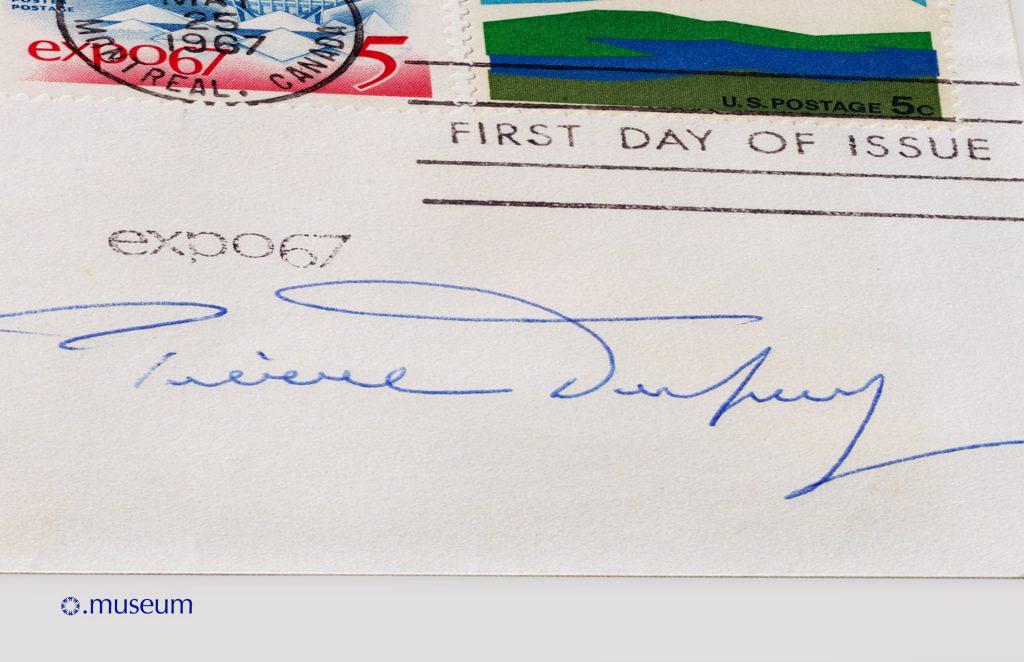 POSTAGE
25
1967
MONTREAL. CANADA
expo67 5
U.S. POSTAGE 5c
FIRST DAY OF ISSUE
expo67
Pierre Dupuy
.museum